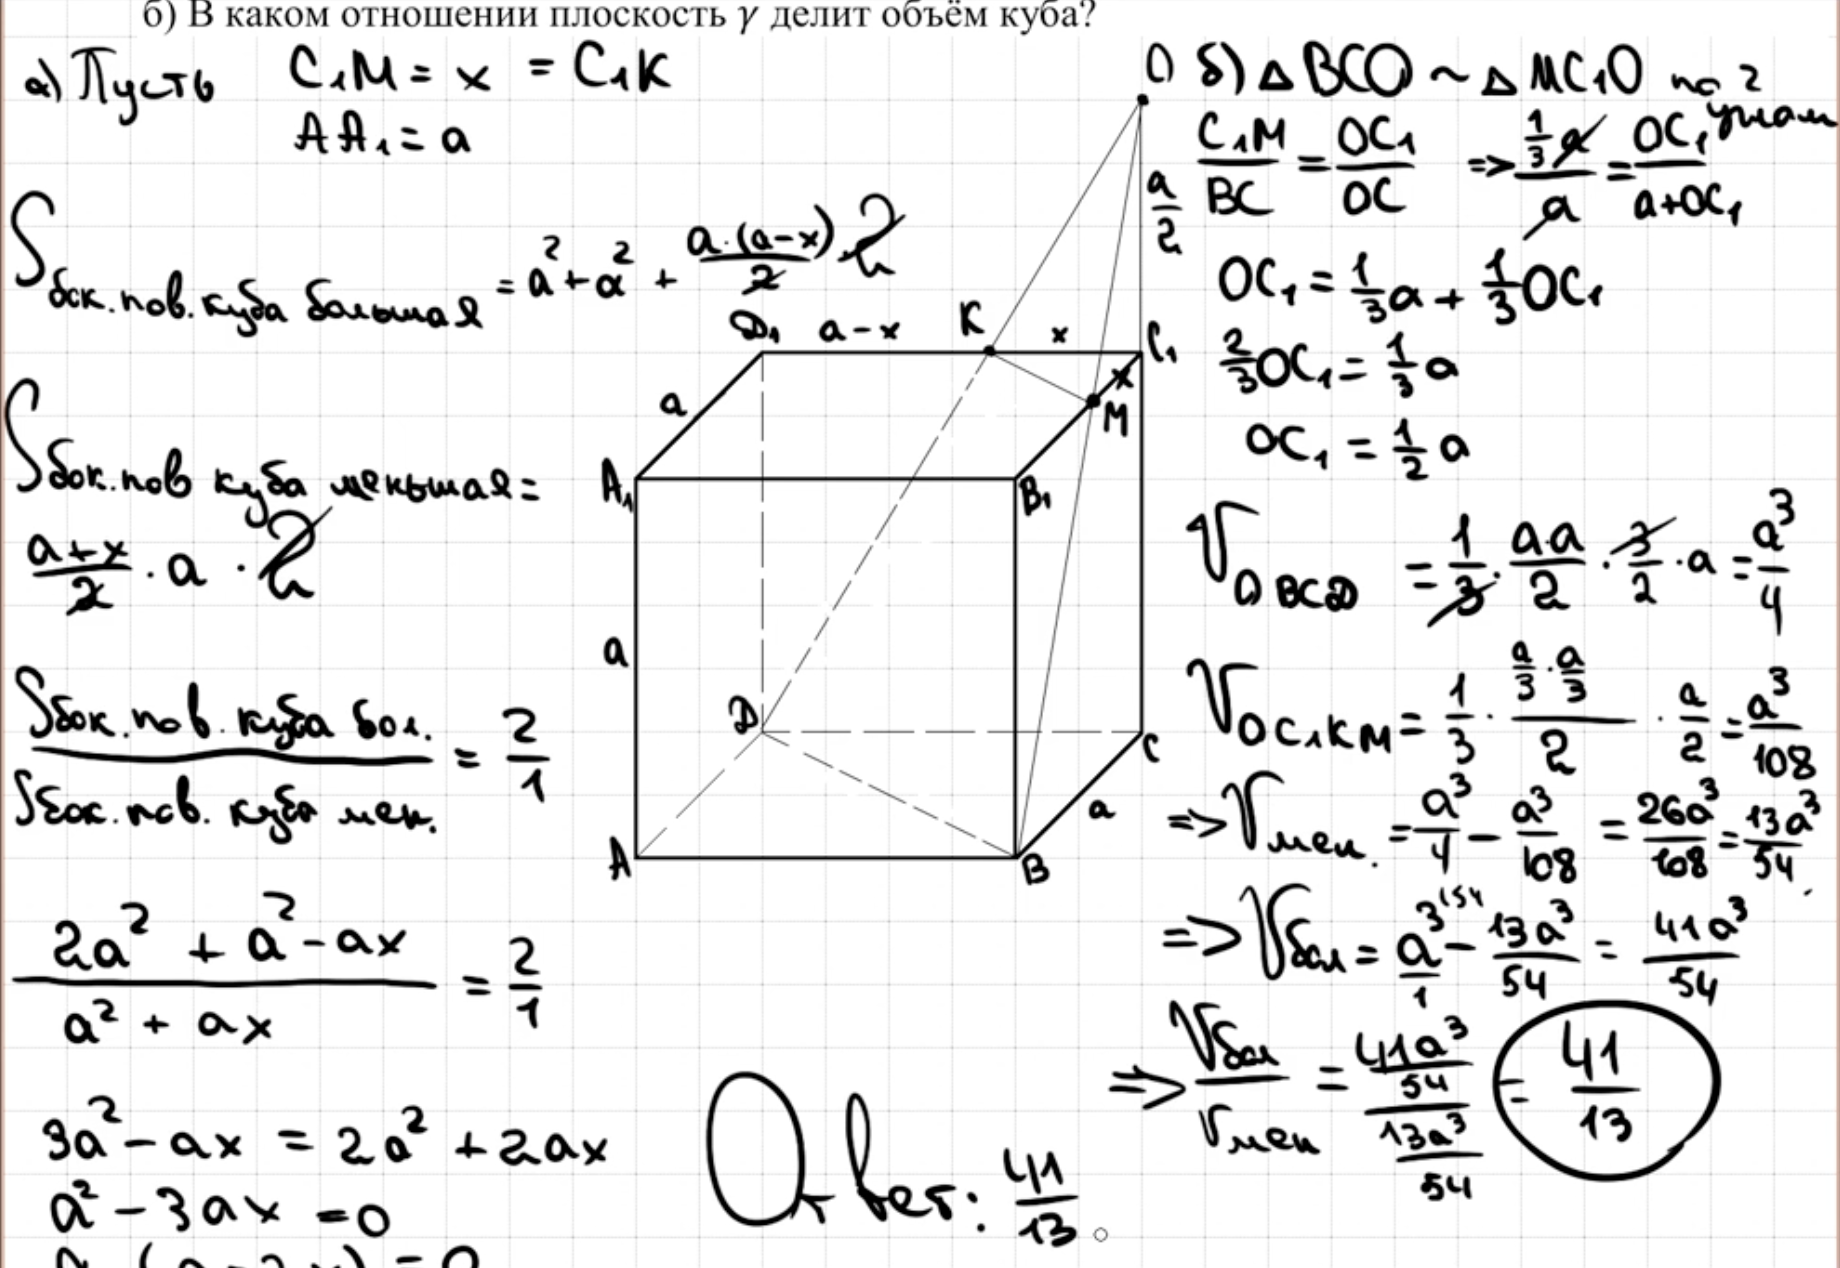 б) В каком отношении плоскость γ делит объём куба?
а) Пусть C₁M = x = C₁K
AA₁ = a
S бок. пов. куба большая = a² + a² + a·(a-x)/2 · 2
S бок. пов куба меньшая =
a+x/2 · a · 2
S бок. пов. куба бол. / S бок. пов. куба мен. = 2/1
2a² + a² - ax / a² + ax = 2/1
3a² - ax = 2a² + 2ax
a² - 3ax = 0
O
a/2
D₁ a-x K x C₁
a x M
A₁ B₁
a
D C
a
A B
б) △ BCO ~ △ MC₁O по 2 углам
C₁M/BC = OC₁/OC => 1/3 a / a = OC₁/a+OC₁
OC₁ = 1/3 a + 1/3 OC₁
2/3 OC₁ = 1/3 a
OC₁ = 1/2 a
V OBCD = 1/3 · aa/2 · 3/2 · a = a³/4
V OC₁KM = 1/3 · a/3 · a/3 / 2 · a/2 = a³/108
=> V мен. = a³/4 - a³/108 = 26a³/108 = 13a³/54
=> V бол = a³/1 - 13a³/54 = 41a³/54
=> V бол / V мен = 41a³/54 / 13a³/54 = 41/13
Ответ: 41/13.